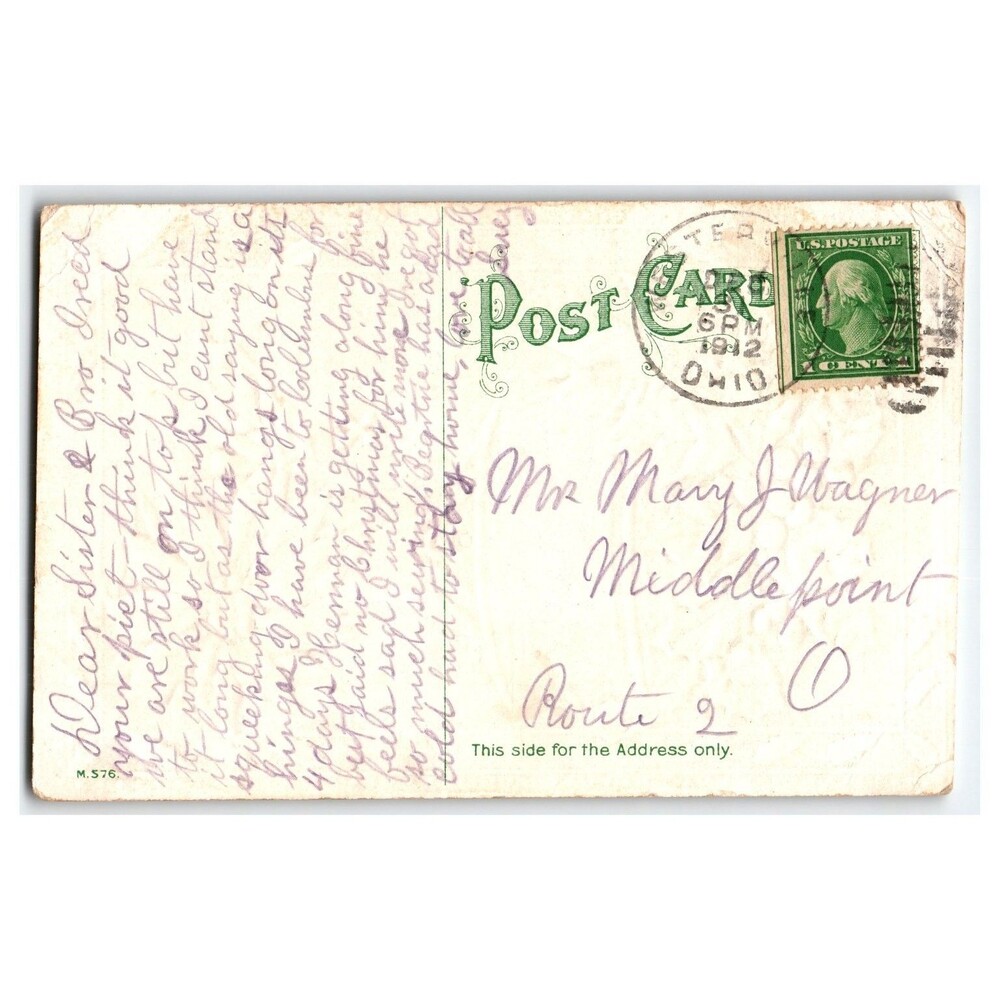 Dear Sister & Bro I recd
your pict - think it good
we are still on top but have
to work so I think I cant stand
it long but as the old saying is a
squeeking door hangs long on its
hinges I have been to Columbus for
4 days Henry is getting along fine
but said no
feels sad I will write more Ive got
so much sewing has a bad
cold had to stay home, love to all
POST CARD
TER
5
6 PM
1912
OHIO
U.S. POSTAGE
CENT
Mrs Mary J Wagner
Middlepoint
O
Route 2
This side for the Address only.
M. 576.